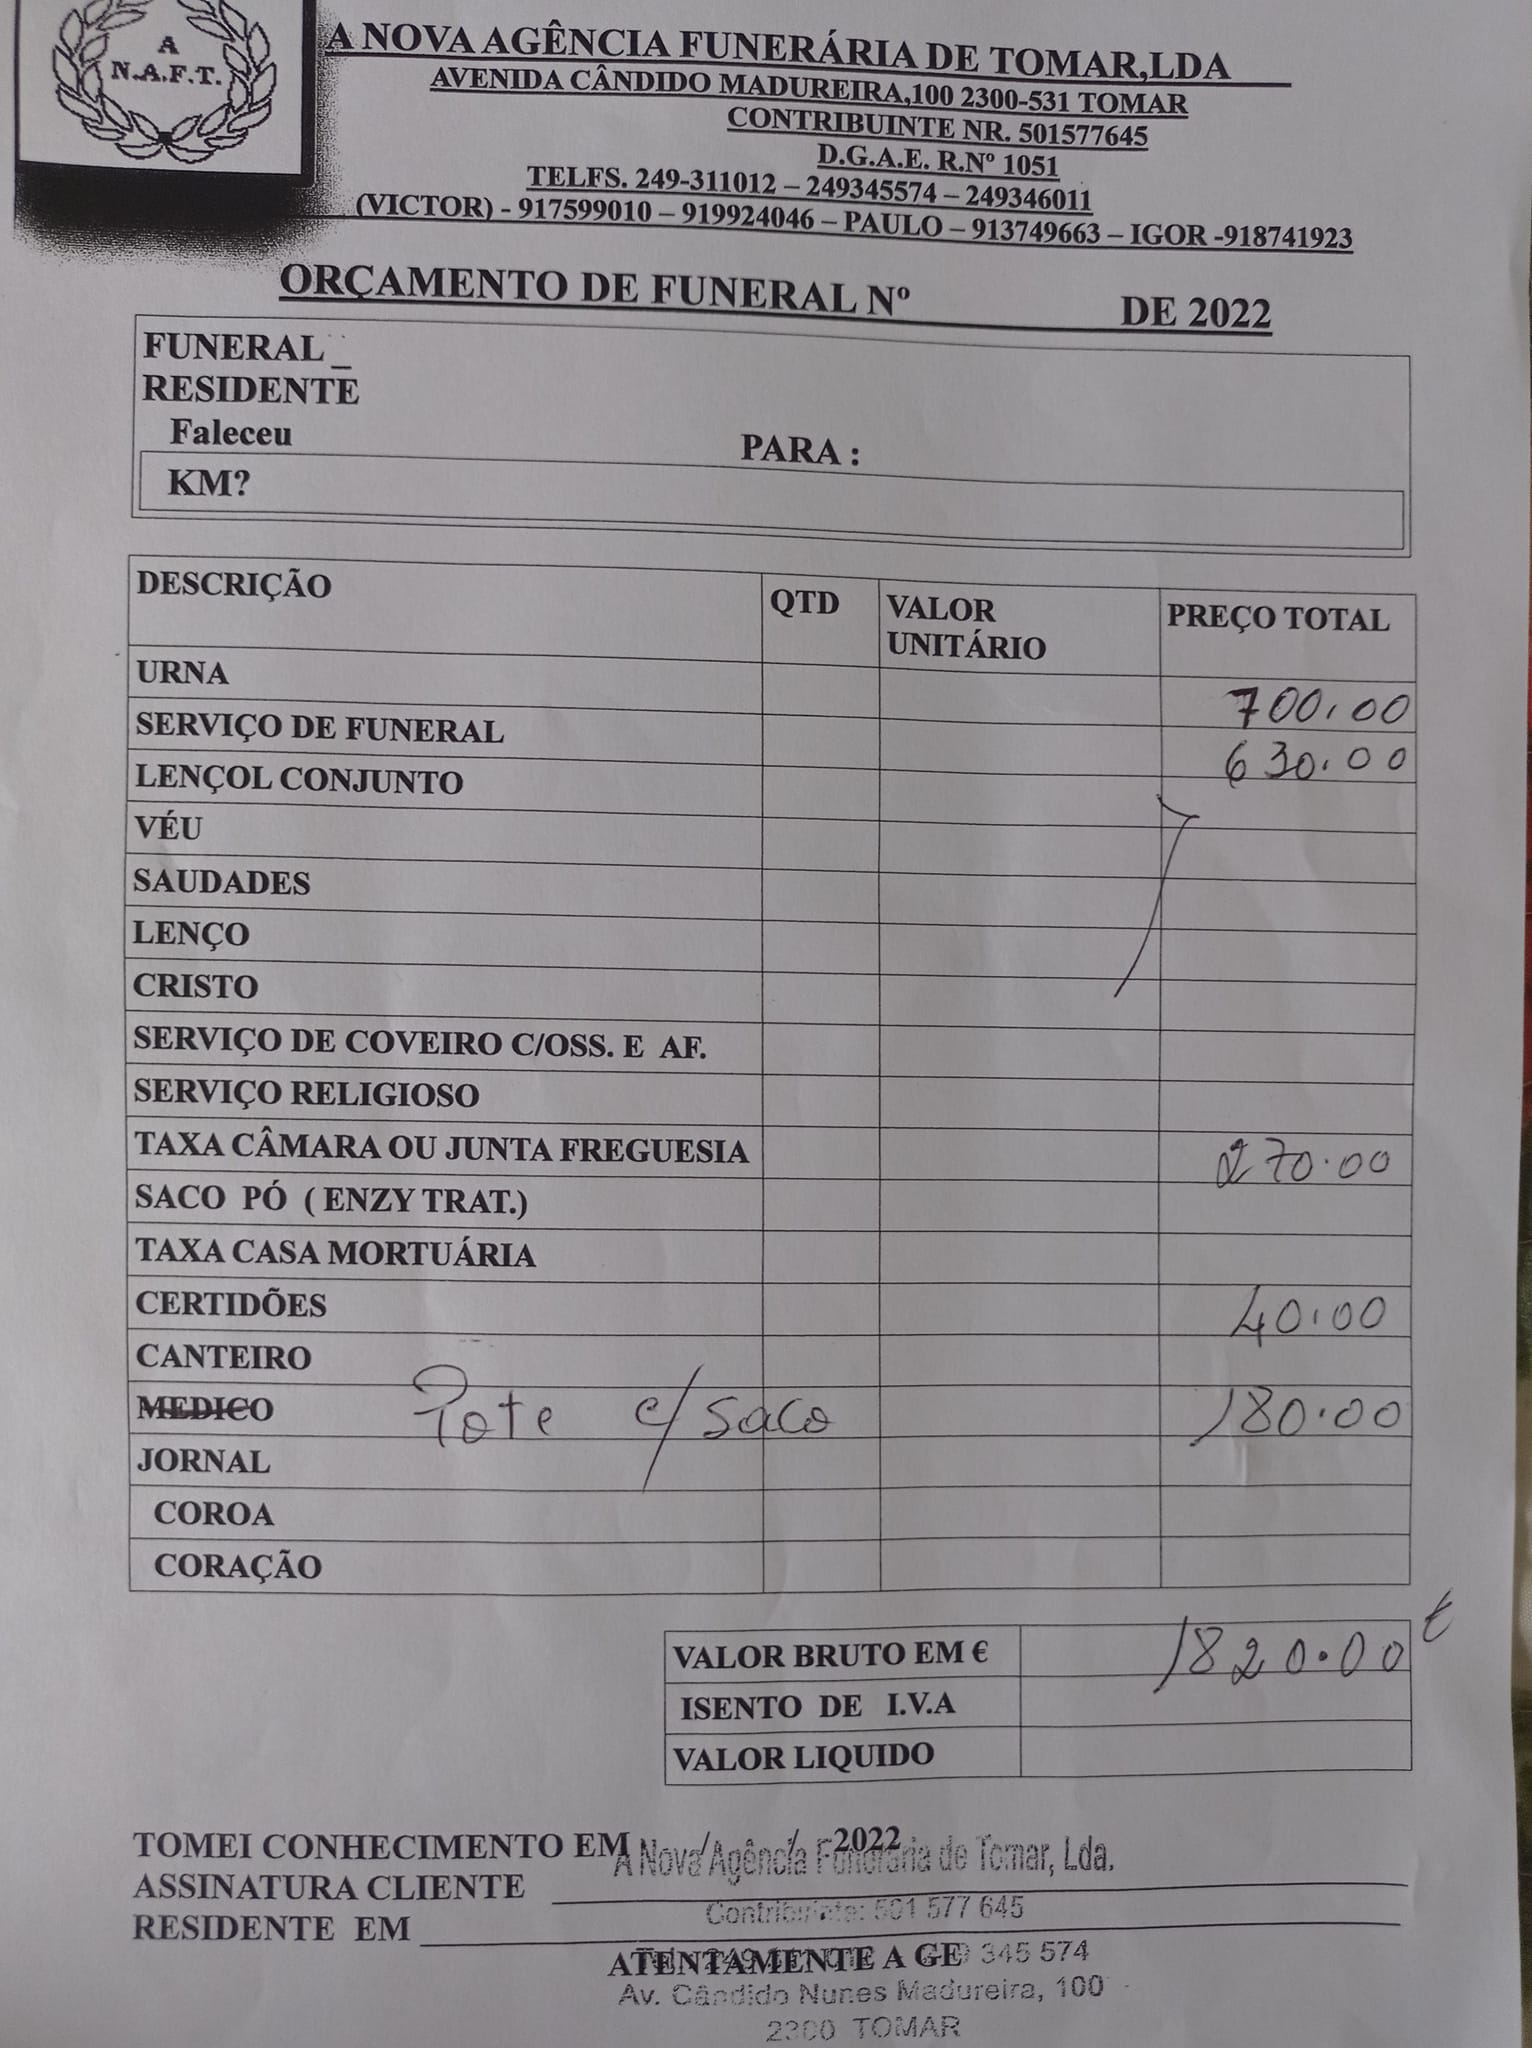 A
N.A.F.T.
A NOVA AGÊNCIA FUNERÁRIA DE TOMAR,LDA
AVENIDA CÂNDIDO MADUREIRA,100 2300-531 TOMAR
CONTRIBUINTE NR. 501577645
D.G.A.E. R.Nº 1051
TELFS. 249-311012 – 249345574 – 249346011
(VICTOR) - 917599010 – 919924046 – PAULO – 913749663 – IGOR -918741923
ORÇAMENTO DE FUNERAL Nº DE 2022
FUNERAL _
RESIDENTE
Faleceu PARA :
KM?
DESCRIÇÃO QTD VALOR UNITÁRIO PREÇO TOTAL
URNA 700,00
SERVIÇO DE FUNERAL 630,00
LENÇOL CONJUNTO
VÉU
SAUDADES
LENÇO
CRISTO
SERVIÇO DE COVEIRO C/OSS. E AF.
SERVIÇO RELIGIOSO
TAXA CÂMARA OU JUNTA FREGUESIA 270.00
SACO PÓ ( ENZY TRAT.)
TAXA CASA MORTUÁRIA
CERTIDÕES 40,00
CANTEIRO
MEDICO Pote c/ saco 180.00
JORNAL
COROA
CORAÇÃO
VALOR BRUTO EM € 1820.00 €
ISENTO DE I.V.A
VALOR LIQUIDO
TOMEI CONHECIMENTO EM / / 2022
A Nova Agência Funerária de Tomar, Lda.
ASSINATURA CLIENTE
Contribuinte: 501 577 645
RESIDENTE EM
ATENTAMENTE A GE 345 574
Av. Cândido Nunes Madureira, 100
2300 TOMAR